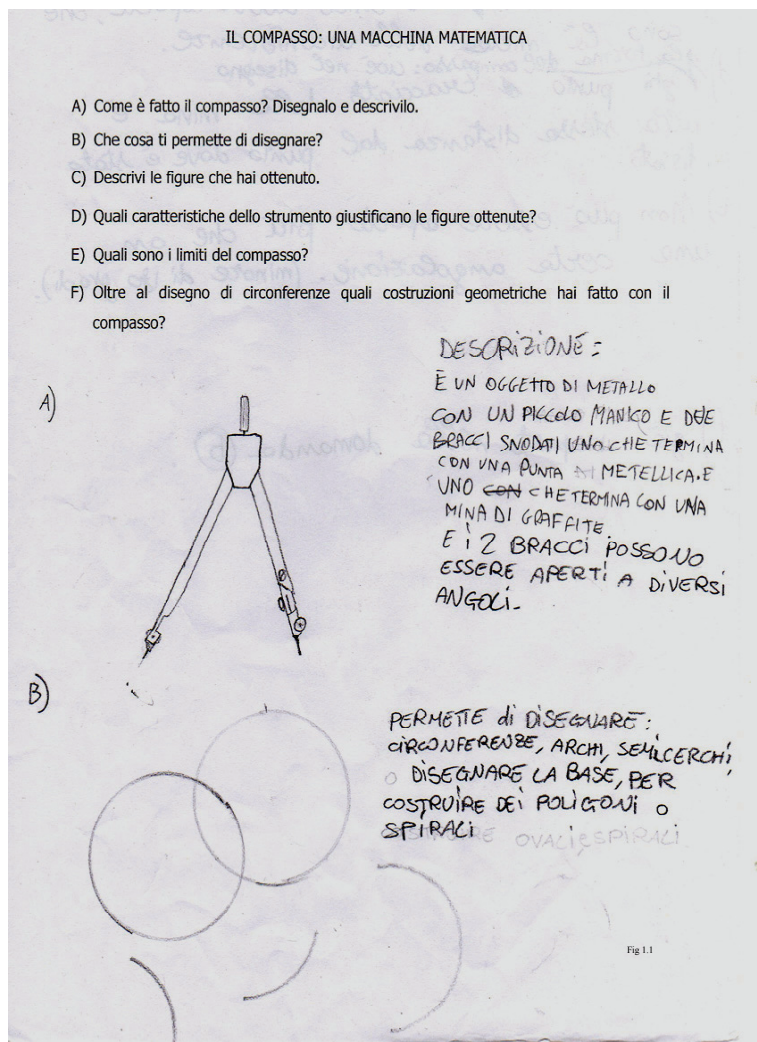 IL COMPASSO: UNA MACCHINA MATEMATICA
A) Come è fatto il compasso? Disegnalo e descrivilo.
B) Che cosa ti permette di disegnare?
C) Descrivi le figure che hai ottenuto.
D) Quali caratteristiche dello strumento giustificano le figure ottenute?
E) Quali sono i limiti del compasso?
F) Oltre al disegno di circonferenze quali costruzioni geometriche hai fatto con il
compasso?
A)
DESCRIZIONE:
È UN OGGETTO DI METALLO
CON UN PICCOLO MANICO E DUE
BRACCI SNODATI UNO CHE TERMINA
CON UNA PUNTA METELLICA. E
UNO CON CHE TERMINA CON UNA
MINA DI GRAFFITE
E i 2 BRACCI POSSONO
ESSERE APERTI A DIVERSI
ANGOLI.
B)
PERMETTE di DISEGNARE:
CIRCONFERENZE, ARCHI, SEMICERCHI,
O DISEGNARE LA BASE, PER
COSTRUIRE DEI POLIGONI O
SPIRALI
OVALI E SPIRALI
Fig 1.1